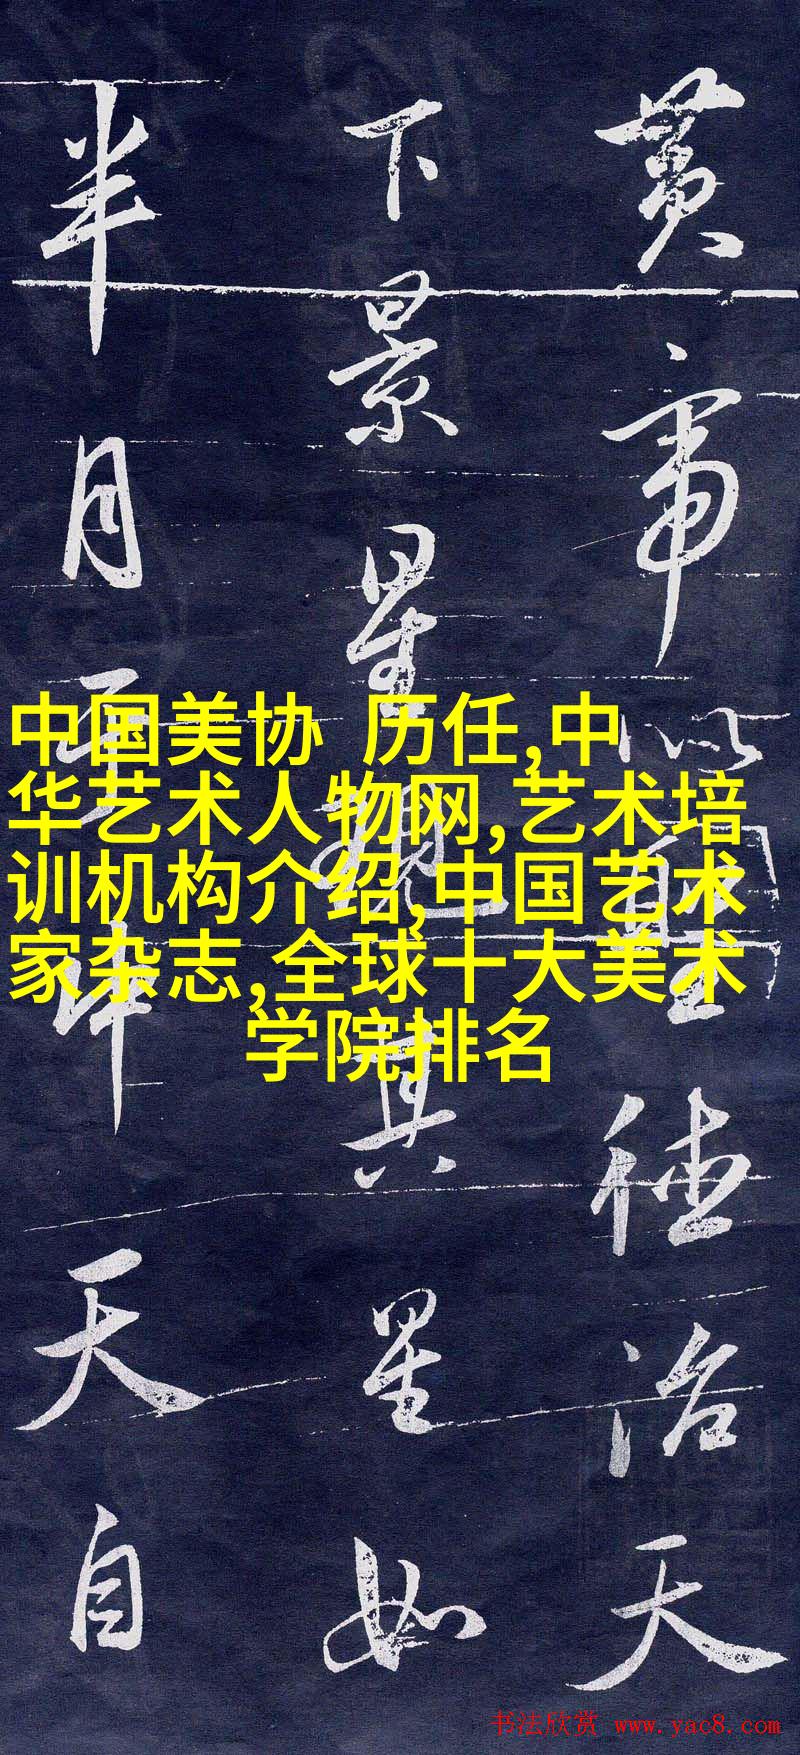 黄帝以聖德治天
下景星現其星如
半月中天自
中国美协 历任,中
华艺术人物网,艺术培
训机构介绍,中国艺术
家杂志,全球十大美术
学院排名
书法欣赏 www.yac8.com